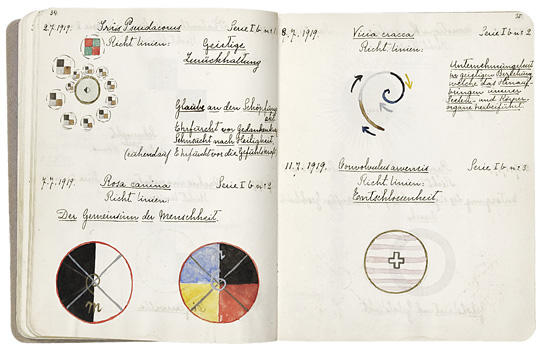 34.
2.7.1919. Iris Pseudacorus Serie I b. nr 1
Richt linien:
Geistige
Zurückhaltung
Glaube an den Schöpfung
Ehrfurcht vor Gedanken
Sehnsucht nach Heiligkeit,
Ehrfurcht vor die Gefühlskraft
7.7.1919. Rosa canina Serie I b. nr 2
Richt linien:
Der Gemeinsinn der Menschheit.
n
35.
8.7.1919. Vicia cracca Serie I b nr 2
Richt linien:
Unternehmungslust
in geistigen Beziehung
welche das
unserer
Seelen- und Körper
organe herbeiführt.
11.7.1919. Convolvulus arvensis Serie I b. nr 3.
Richt linien:
Entschlossenheit